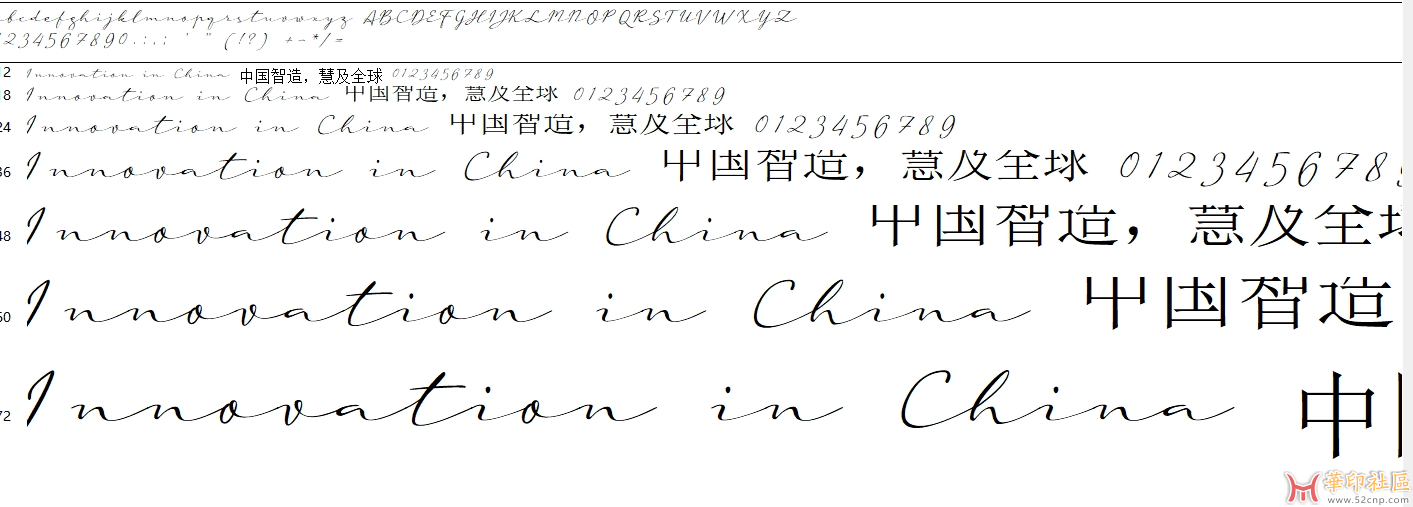 bcdefghijklmnopqrstuvwxyz ABCDEFGHIJKLMNOPQRSTUVWXYZ
1234567890.:,; ' " (!?) +-*/=
12 Innovation in China 中国智造，慧及全球 0123456789
18 Innovation in China 中国智造，慧及全球 0123456789
24 Innovation in China 中国智造，慧及全球 0123456789
36 Innovation in China 中国智造，慧及全球 012345678
48 Innovation in China 中国智造，慧及全球
60 Innovation in China 中国智造
72 Innovation in China 中
華印社區
www.52cnp.com